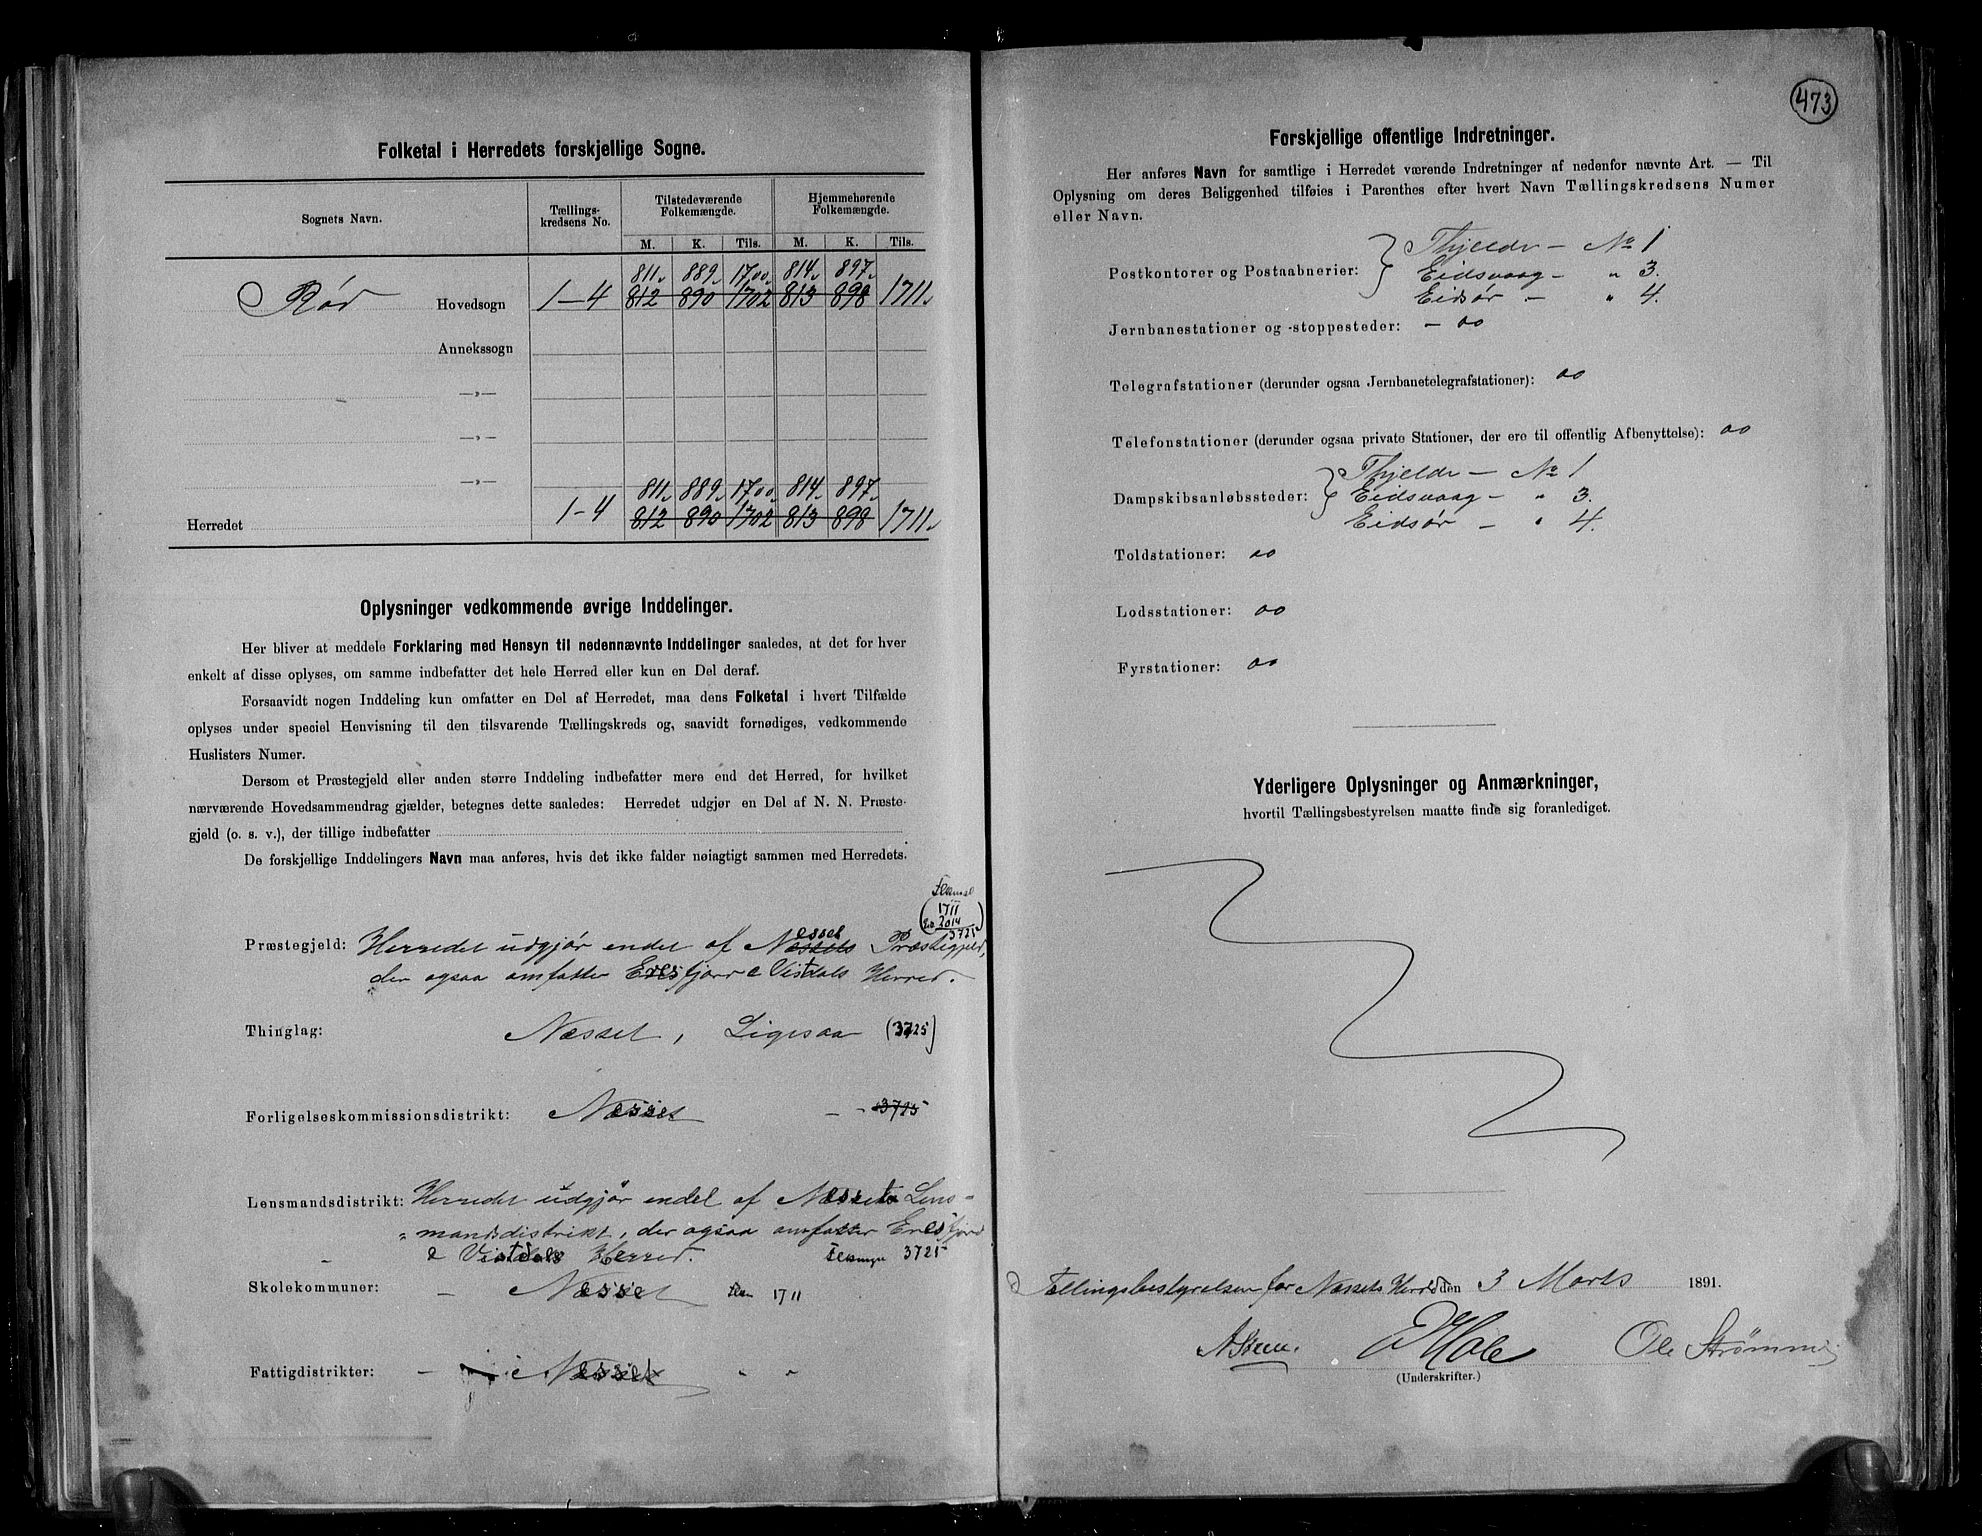 Folketal i Herredets forskjellige Sogne.
Sognets Navn. Tællings-kredsens No. Tilstedeværende Folkemængde. Hjemmehørende Folkemængde.
M. K. Tils. M. K. Tils.
811 889 1700 814 897
Rød Hovedsogn 1-4 812 890 1702 813 898 1711
Annekssogn
—»—
—»—
—»—
811 889 1700 814 897
Herredet 1-4 812 890 1702 813 898 1711
Oplysninger vedkommende øvrige Inddelinger.
Her bliver at meddele Forklaring med Hensyn til nedennævnte Inddelinger saaledes, at det for hver
enkelt af disse oplyses, om samme indbefatter det hele Herred eller kun en Del deraf.
Forsaavidt nogen Inddeling kun omfatter en Del af Herredet, maa dens Folketal i hvert Tilfælde
oplyses under speciel Henvisning til den tilsvarende Tællingskreds og, saavidt fornødiges, vedkommende
Huslisters Numer.
Dersom et Præstegjeld eller anden større Inddeling indbefatter mere end det Herred, for hvilket
nærværende Hovedsammendrag gjælder, betegnes dette saaledes: Herredet udgjør en Del af N. N. Præste-
gjeld (o. s. v.), der tillige indbefatter
De forskjellige Inddelingers Navn maa anføres, hvis det ikke falder nøiagtigt sammen med Herredets.
1711
2014
3725
Præstegjeld: Herredet udgjør endel af Næssets Præstegjeld,
der ogsaa omfatter Eresfjord & Vistdals Herred.
Thinglag: Næsset, Ligesaa (3725)
Forligelseskommissionsdistrikt: Næsset — - 3725
Lensmandsdistrikt: Herredet udgjør endel af Næssets Lens-
mandsdistrikt, der ogsaa omfatter Eresfjord
& Vistdals Herred. 3725
Skolekommuner: - Næsset 1711
Fattigdistrikter: - Næsset " "
473
Forskjellige offentlige Indretninger.
Her anføres Navn for samtlige i Herredet værende Indretninger af nedenfor nævnte Art. — Til
Oplysning om deres Beliggenhed tilføies i Parenthes efter hvert Navn Tællingskredsens Numer
eller Navn.
Postkontorer og Postaabnerier: Thjelde - No 1
Eidsvaag - " 3.
Eidsør - " 4.
Jernbanestationer og -stoppesteder: - oo
Telegrafstationer (derunder ogsaa Jernbanetelegrafstationer): oo
Telefonstationer (derunder ogsaa private Stationer, der ere til offentlig Afbenyttelse): oo
Dampskibsanløbssteder: Thjelde - No 1
Eidsvaag - " 3.
Eidsør - " 4.
Toldstationer: oo
Lodsstationer: oo
Fyrstationer: oo
Yderligere Oplysninger og Anmærkninger,
hvortil Tællingsbestyrelsen maatte finde sig foranlediget.
Tællingsbestyrelsen for Næssets Herred den 3 Marts 1891.
Ole Strømme
(Underskrifter.)